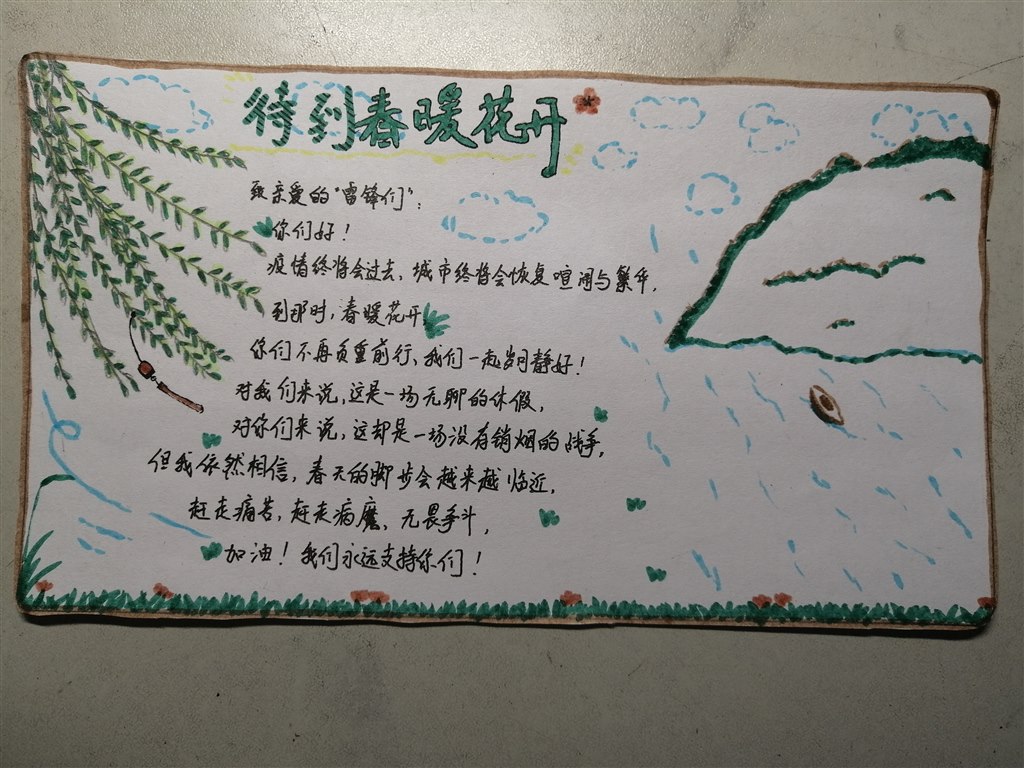 待到春暖花开
致亲爱的“雷锋们”：
你们好！
疫情终将会过去，城市终将会恢复喧闹与繁华，
到那时，春暖花开
你们不再负重前行，我们一起岁月静好！
对我们来说，这是一场无聊的休假，
对你们来说，这却是一场没有销烟的战争，
但我依然相信，春天的脚步会越来越临近，
赶走痛苦，赶走病魔，无畏争斗，
加油！我们永远支持你们！